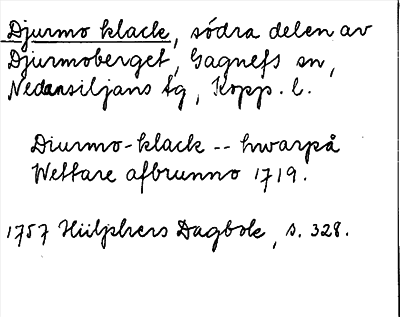 Djurmo klack, södra delen av
Djurmoberget, Gagnefs sn,
Nedansiljans fg, Kopp. l.
Diurmo-klack -- hwarpå
Wettare afbrunno 1719.
1757 Hülphers Dagbok, s. 328.